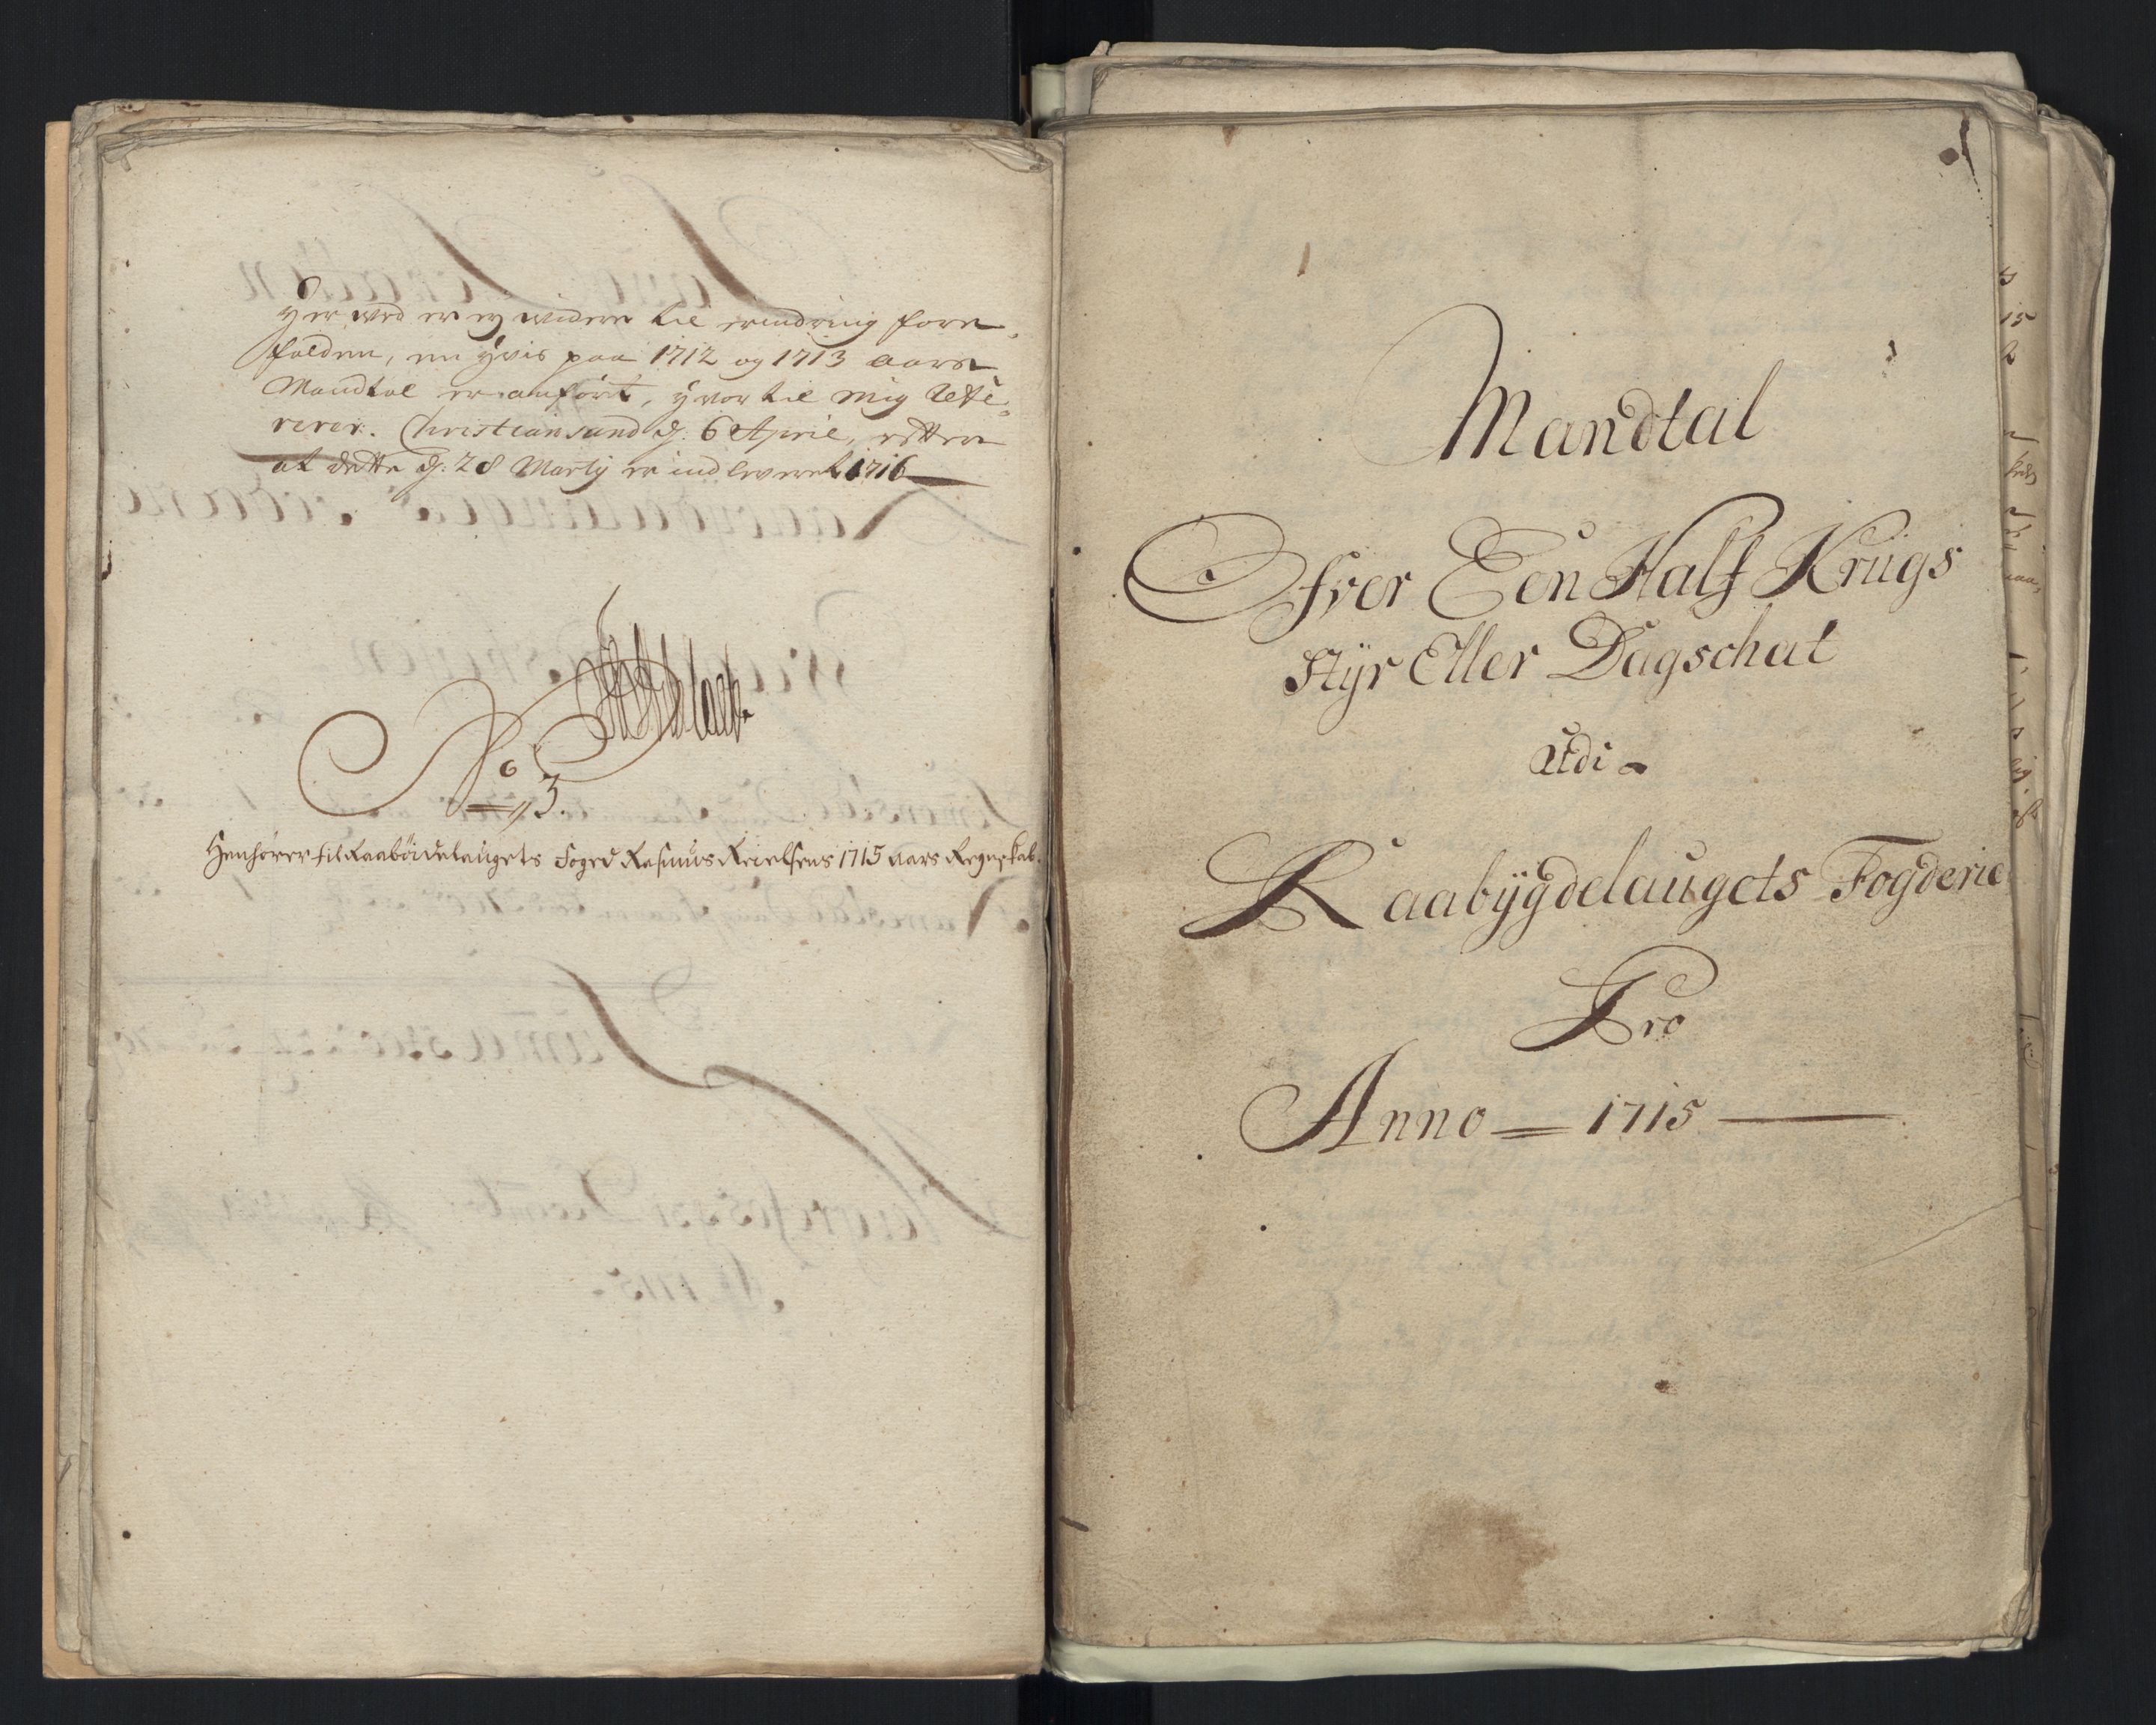 Her ved er ey videre til erindring fore-
falden, en hvis paa 1712 og 1713 aars
Mandtal er anført, hvor til mig Refe-
rerer. Christiansand d: 6 April, efter
at dette d: 28 Martij er indleveret 1716
No 3.
Henhører til Raabøidelaugets Foged Rasmus Reielsens 1715 aars Regnskab.
Mandtal
Ofver Een Half Krügs
Styr Eller Dagschat
Udi
Raabÿgdelaugets Fogderie
Pro
Anno = 1715